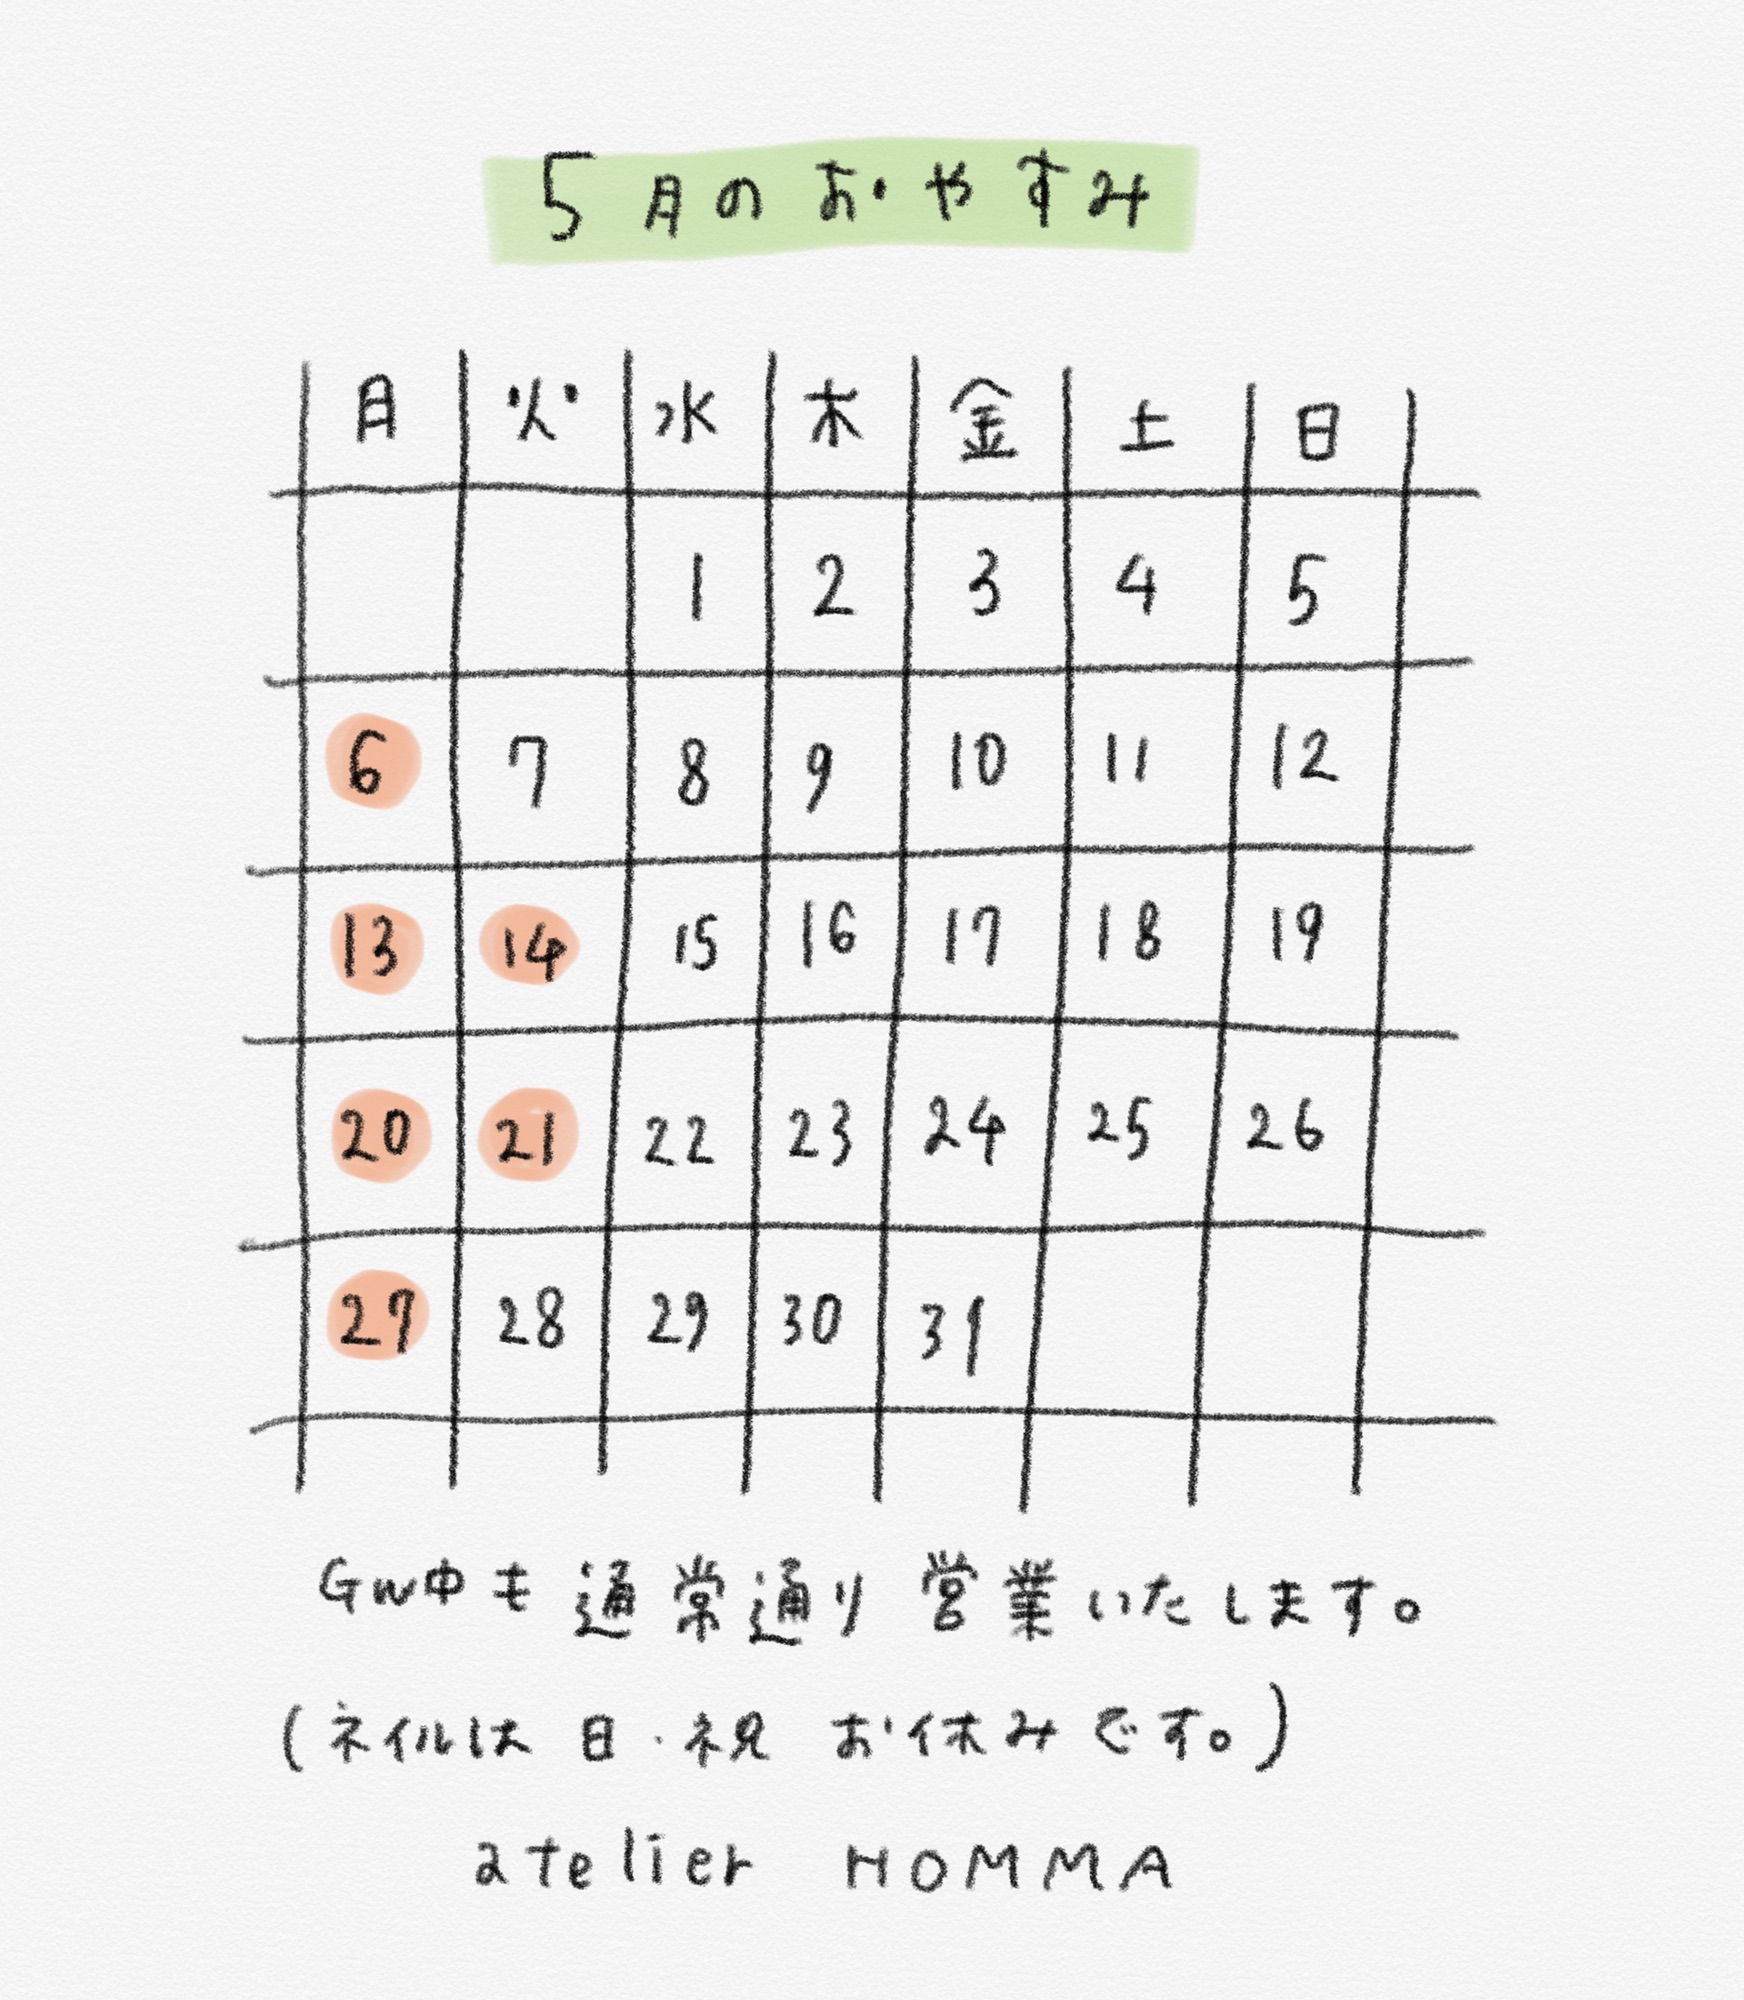 5月のおやすみ
月 火 水 木 金 土 日
1 2 3 4 5
6 7 8 9 10 11 12
13 14 15 16 17 18 19
20 21 22 23 24 25 26
27 28 29 30 31
GW中も通常通り営業いたします。
(ネイルは日・祝 お休みです。)
atelier HOMMA